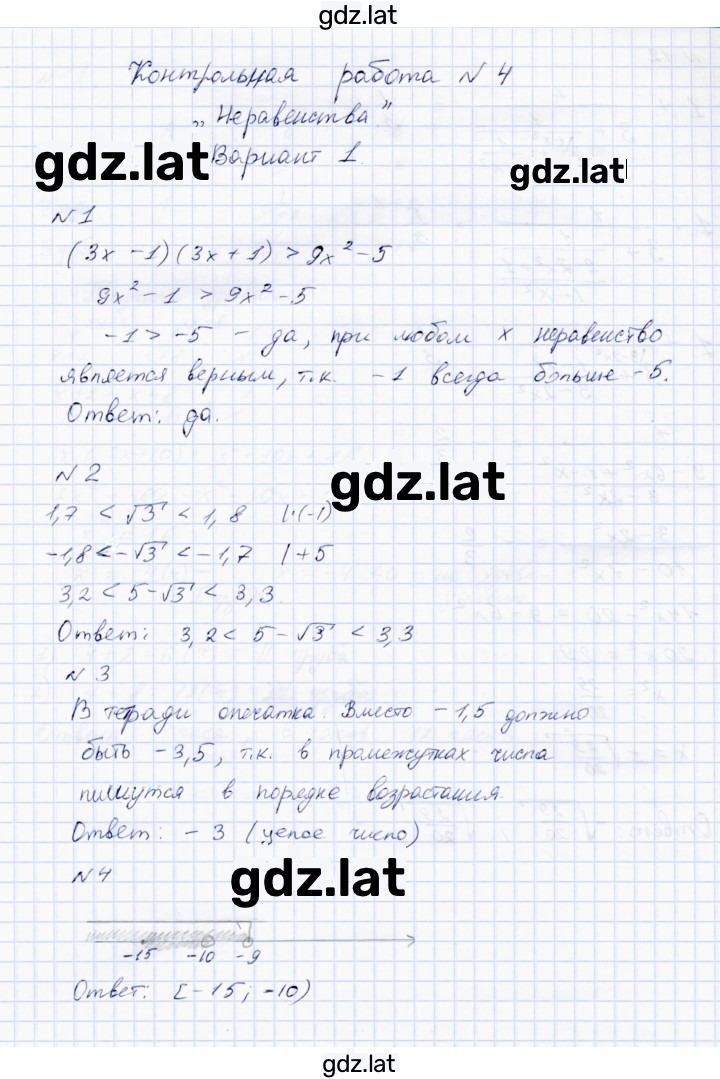 gdz.lat
Контрольная работа N 4
„Неравенства"
gdz.lat Вариант 1. gdz.lat
N 1
(3x - 1)(3x + 1) > 9x² - 5
9x² - 1 > 9x² - 5
-1 > -5 - да, при любом x неравенство
является верным, т.к. -1 всегда больше -5.
Ответ: да.
N 2
gdz.lat
1,7 < √3 < 1,8 |·(-1)
-1,8 < -√3 < -1,7 |+5
3,2 < 5 - √3 < 3,3
Ответ: 3,2 < 5 - √3 < 3,3
N 3
В тетради опечатка. Вместо -1,5 должно
быть -3,5, т.к. в промежутках числа
пишутся в порядке возрастания.
Ответ: -3 (целое число)
N 4 gdz.lat
-15 -10 -9
Ответ: [-15; -10)
gdz.lat